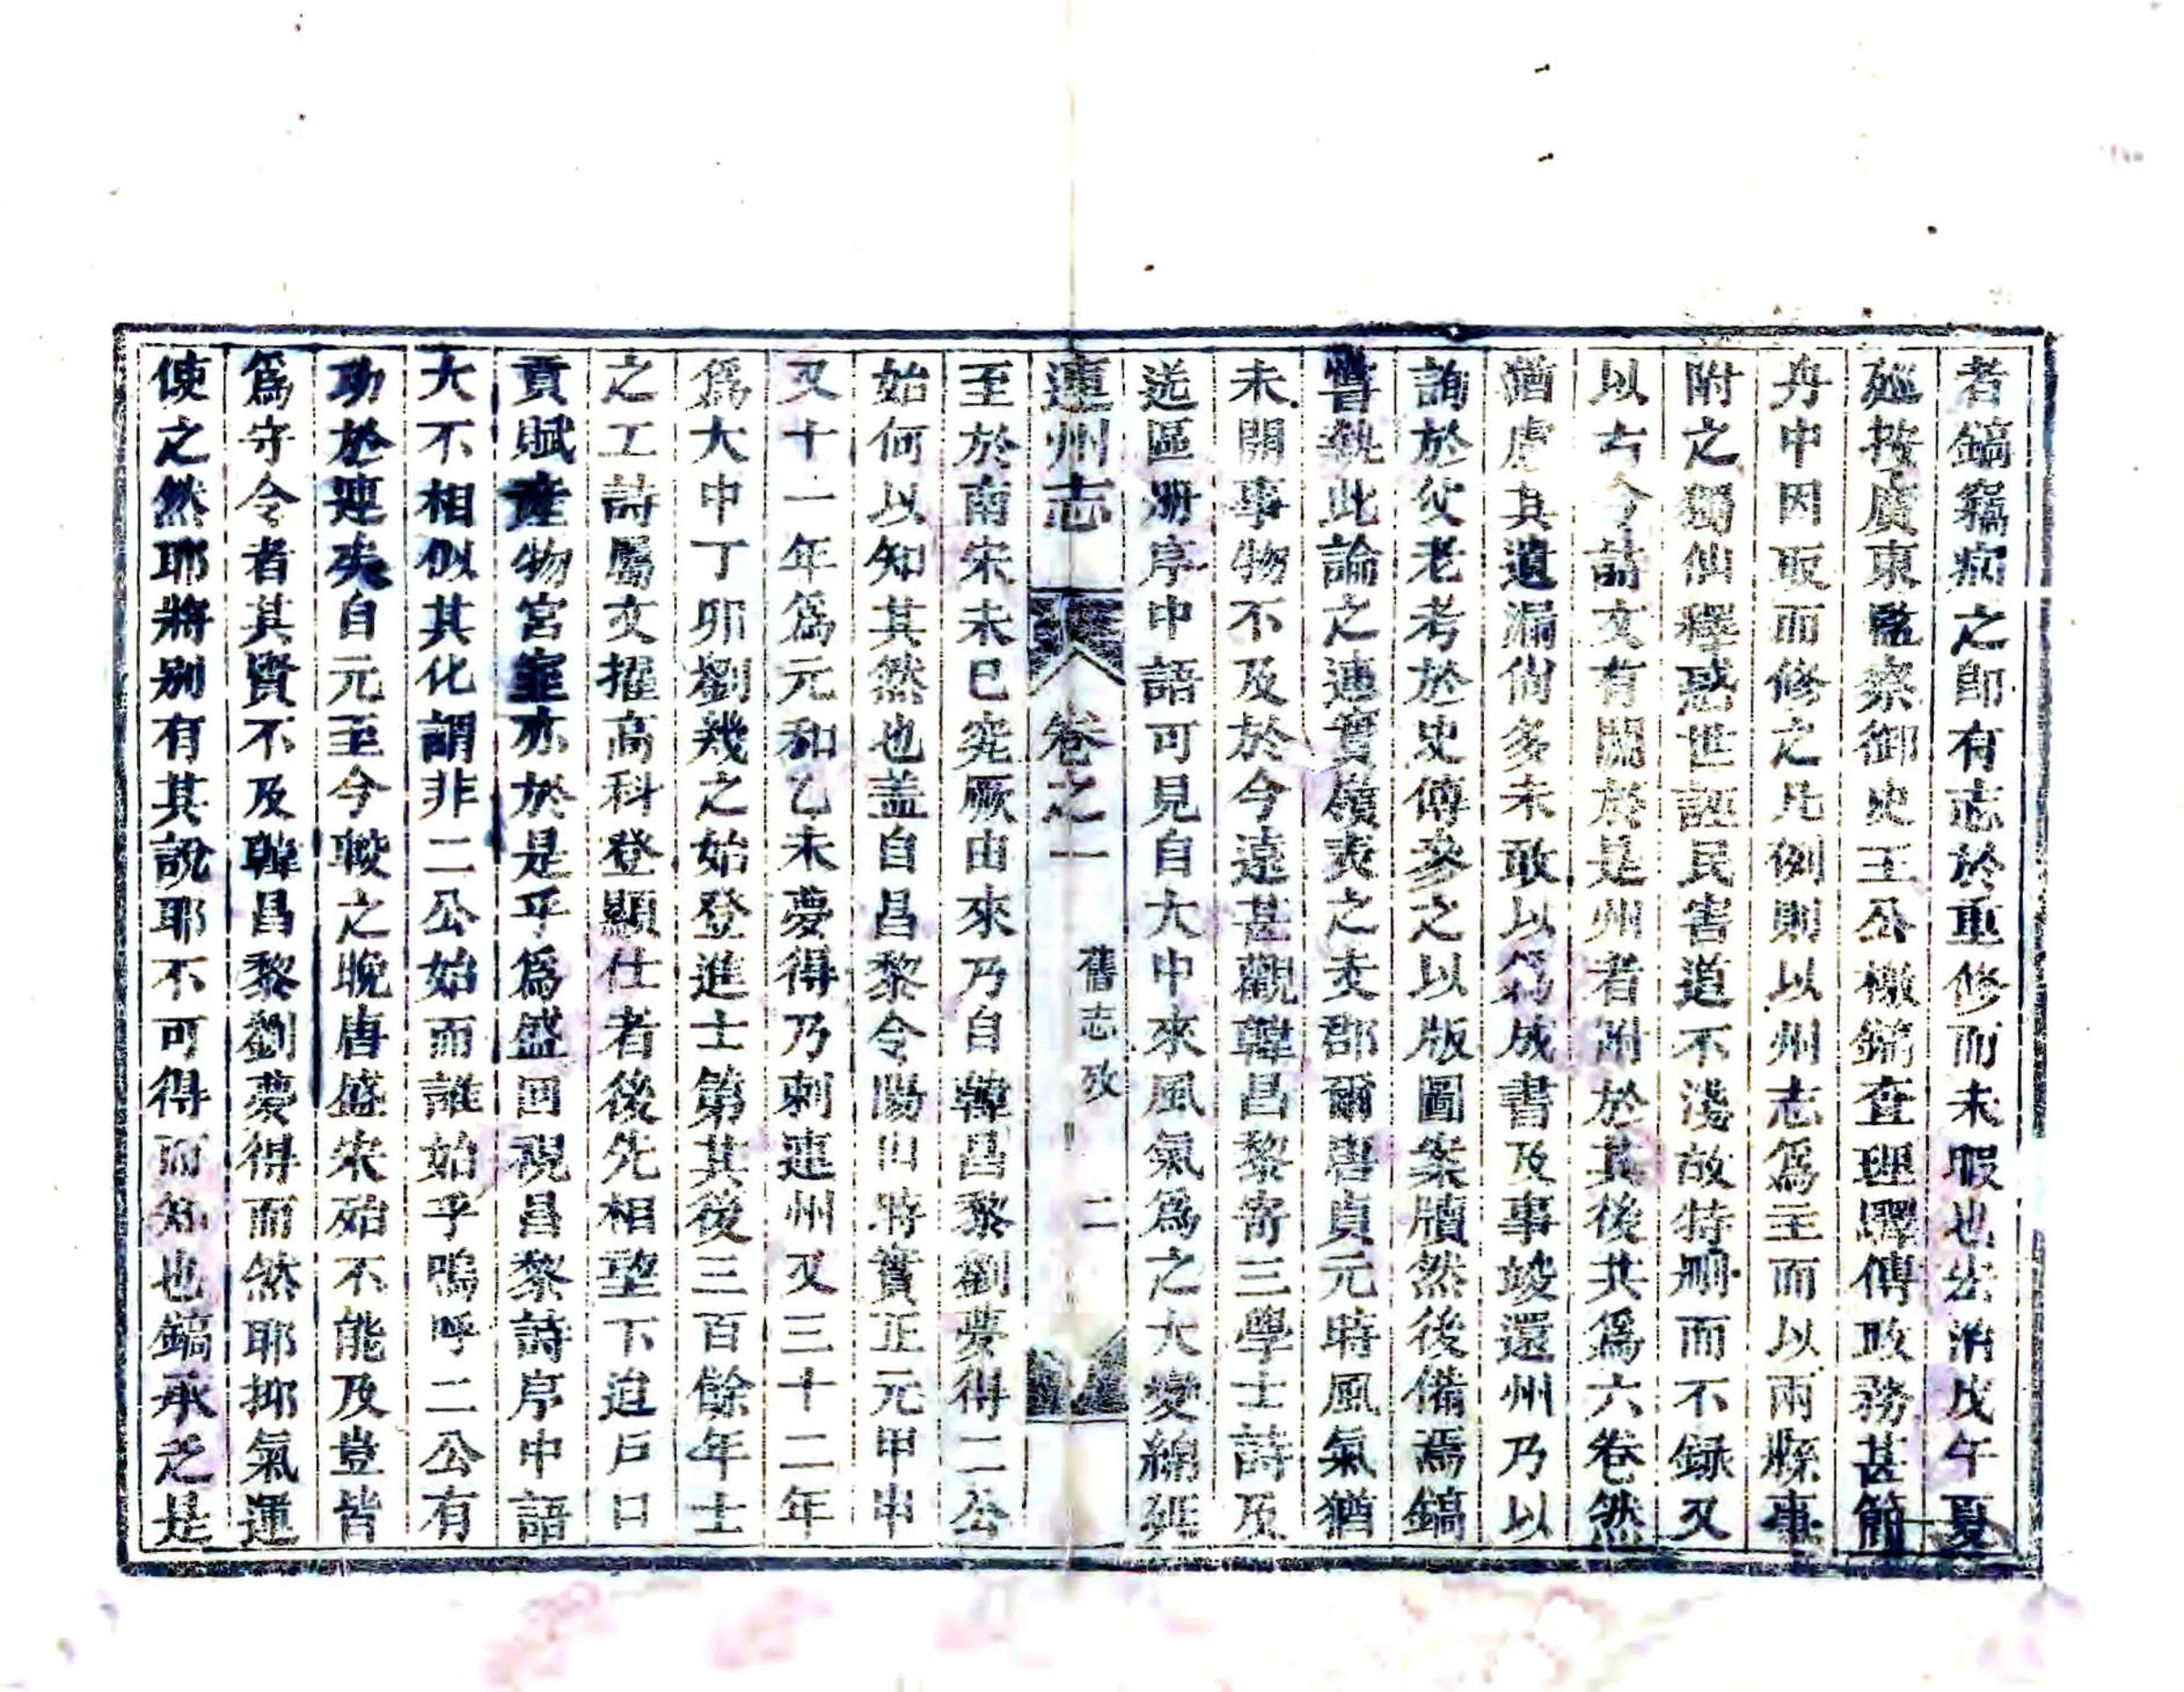 者鎬竊病之即有志於重修而未暇也宏治戊午夏
廵按廣東監察御史王公檄鎬查理驛傳政務甚簡
舟中因取而修之凡例則以州志爲主而以兩縣事
附之獨仙釋惑世誣民害道不淺故特刪而不録又
以古今詩文有關於是州者附於其後共爲六卷然
猶慮其遺漏尙多未敢以爲成書及事竣還州乃以
詢於父老考於史傳叅之以版圖案牘然後備焉鎬
嘗執此論之連實嶺表之大郡爾唐貞元時風氣猶
未開事物不及於今遠甚觀韓昌黎寄三學士詩及
送區册序中語可見自大中來風氣爲之大變綿延
連州志 卷之一 舊志攷 二
至於南宋未巳究厥由來乃自韓昌黎劉夢得二公
始何以知其然也盖自昌黎令陽山時實正元甲申
又十一年爲元和乙未夢得乃刺連州又三十二年
爲大中丁卯劉幾之始登進士第其後三百餘年士
之工詩屬文擢高科登顯仕者後先相望下迨戶口
貢賦產物宮室亦於是乎爲盛回視昌黎詩序中語
大不相似其化謂非二公始而誰始乎嗚呼二公有
功於連矣自元至今較之晚唐盛宋殆不能及豈皆
爲守令者其賢不及韓昌黎劉夢得而然耶抑氣運
使之然耶將別有其說耶不可得而知也鎬承乏是